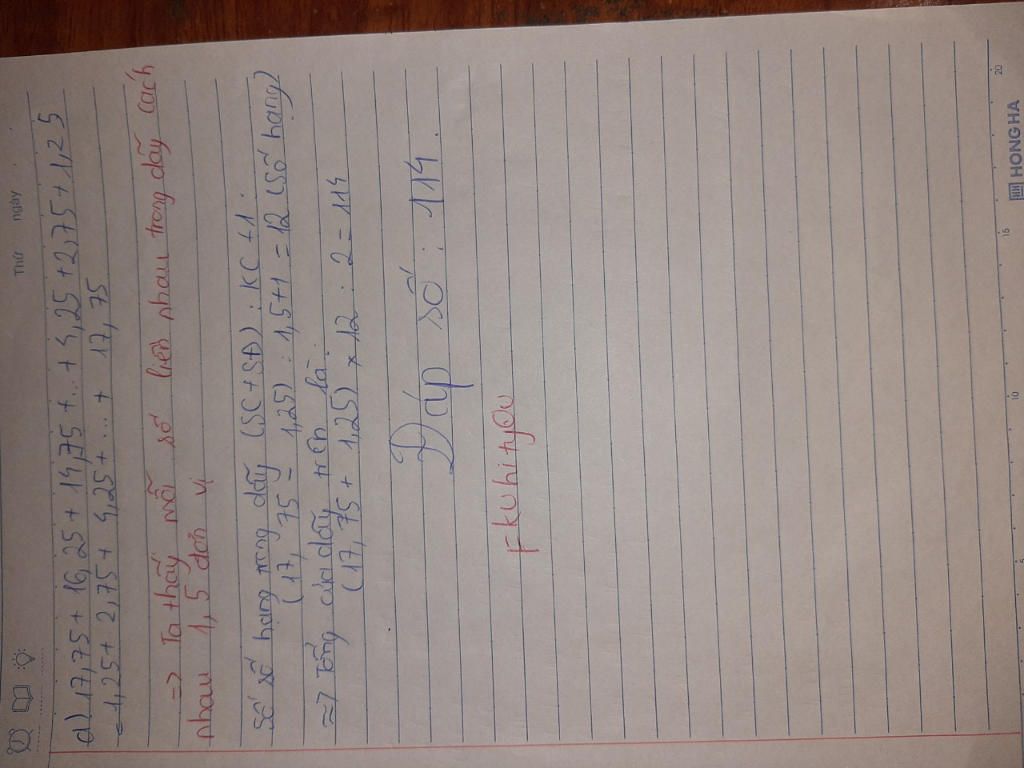 Thứ ngày
a) 17,75 + 16,25 + 14,75 + ... + 4,25 + 2,75 + 1,25
= 1,25 + 2,75 + 4,25 + ... + 17,75
=> Ta thấy mỗi số liền nhau trong dãy cách
nhau 1,5 đơn vị
Số số hạng trong dãy (SC + SĐ) : KC + 1 :
(17,75 - 1,25) : 1,5 + 1 = 12 (số hạng)
=> Tổng của dãy trên là :
(17,75 + 1,25) × 12 : 2 = 114
Đáp số : 114.
5
10
15
20
HONG HA